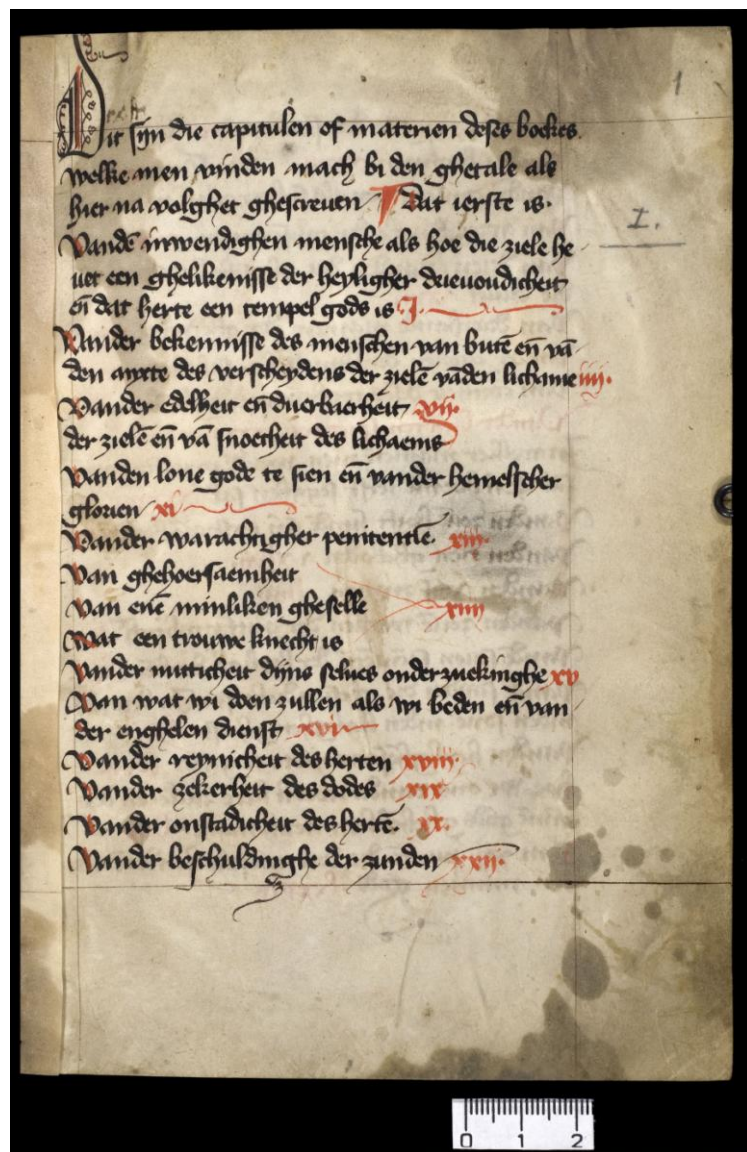 1
Dit sijn die capitulen of materien deses boekes.
welke men vinden mach bi den ghetale als
hier na volghet ghescreuen ¶ Dat ierste is.
I.
Vandē inwendighen mensche als hoe die ziele he
uet een ghelikenisse der heyligher drieuoudicheit
eñ dat herte een tempel gods is J.
Vander bekennisse des menschen van butē eñ vā
den anxte des verscheydens der zielē vāden lichame iiij.
Vander edelheit eñ duerbaerheit vij.
der zielē eñ vā snoetheit des lichaems
Vanden lone gode te sien eñ vander hemelscher
glorien xi
Vander warachtigher penitentiē. xiij.
Van ghehoersaemheit
Van enē minliken gheselle xiiij
Wat een trouwe knecht is
Vander nutticheit dijns selues onderzuekinghe xv
Van wat wi doen zullen als wi beden eñ van
der enghelen dienst xvi
Vander reynicheit des herten xviij.
Vander zekerheit des dodes xix
Vander onstadicheit des hertē. xx.
Vander beschuldinghe der zunden xxij.
0 1 2